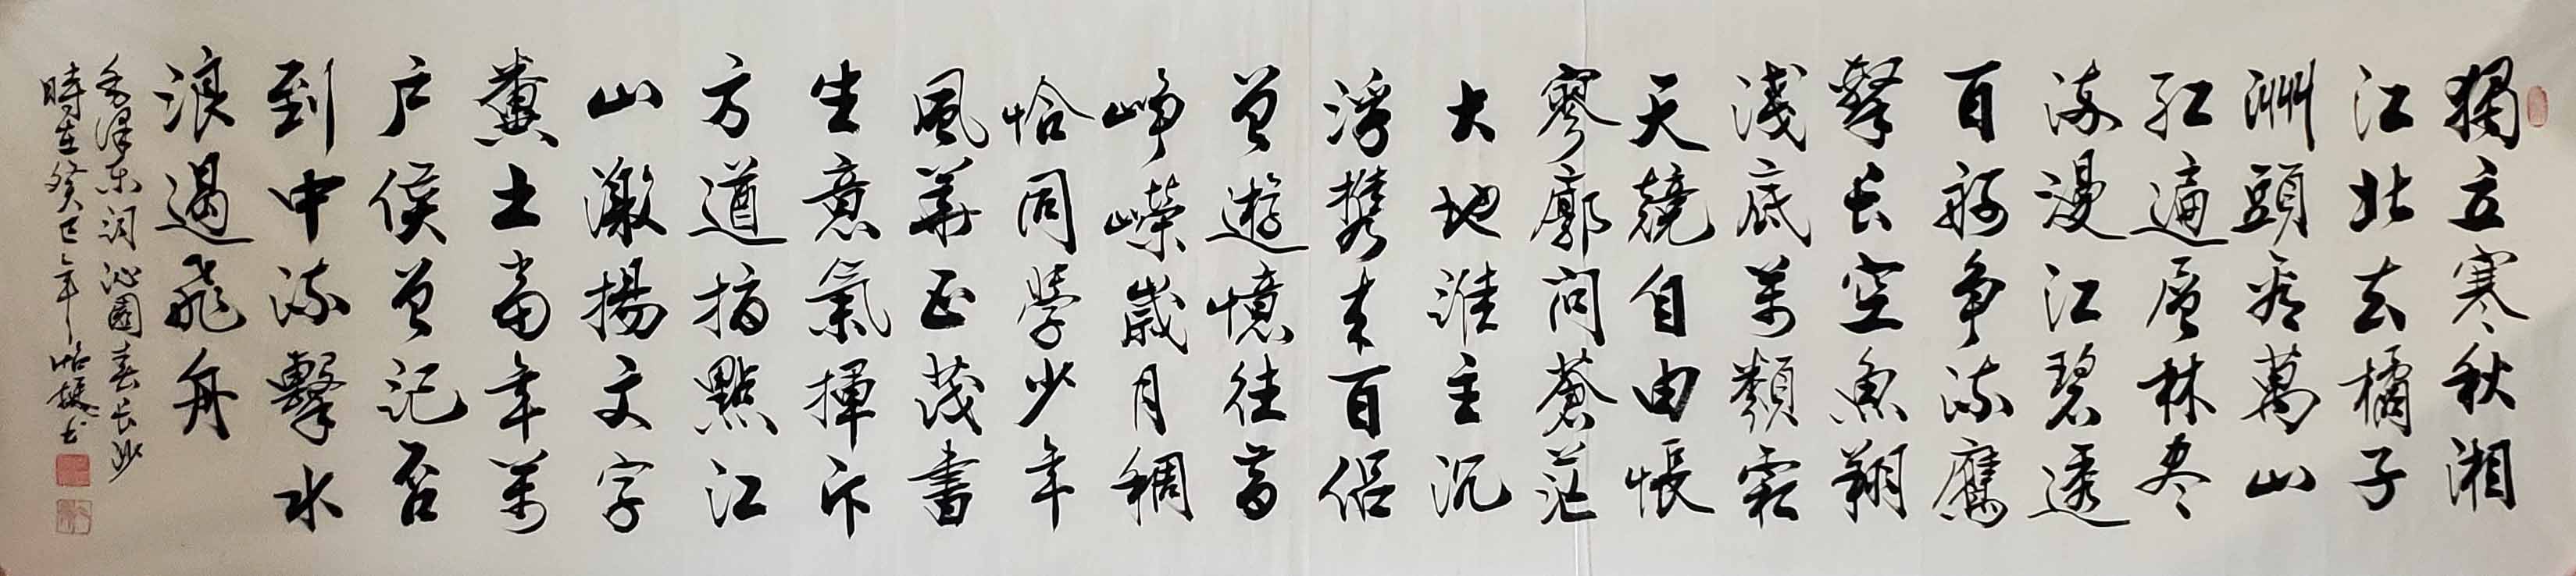 獨立寒秋湘
江北去橘子
洲頭看萬山
红遍层林尽
染漫江碧透
百舸争流鷹
擊长空魚翔
淺底万類霜
天競自由悵
寥廓问蒼茫
大地誰主沉
浮携来百侣
曾遊憶往昔
峥嶸歲月稠
恰同學少年
風華正茂書
生意氣揮斥
方遒指點江
山激揚文字
糞土當年万
户侯曾记否
到中流擊水
浪遏飛舟
毛泽东词沁園春长沙
時在癸巳年